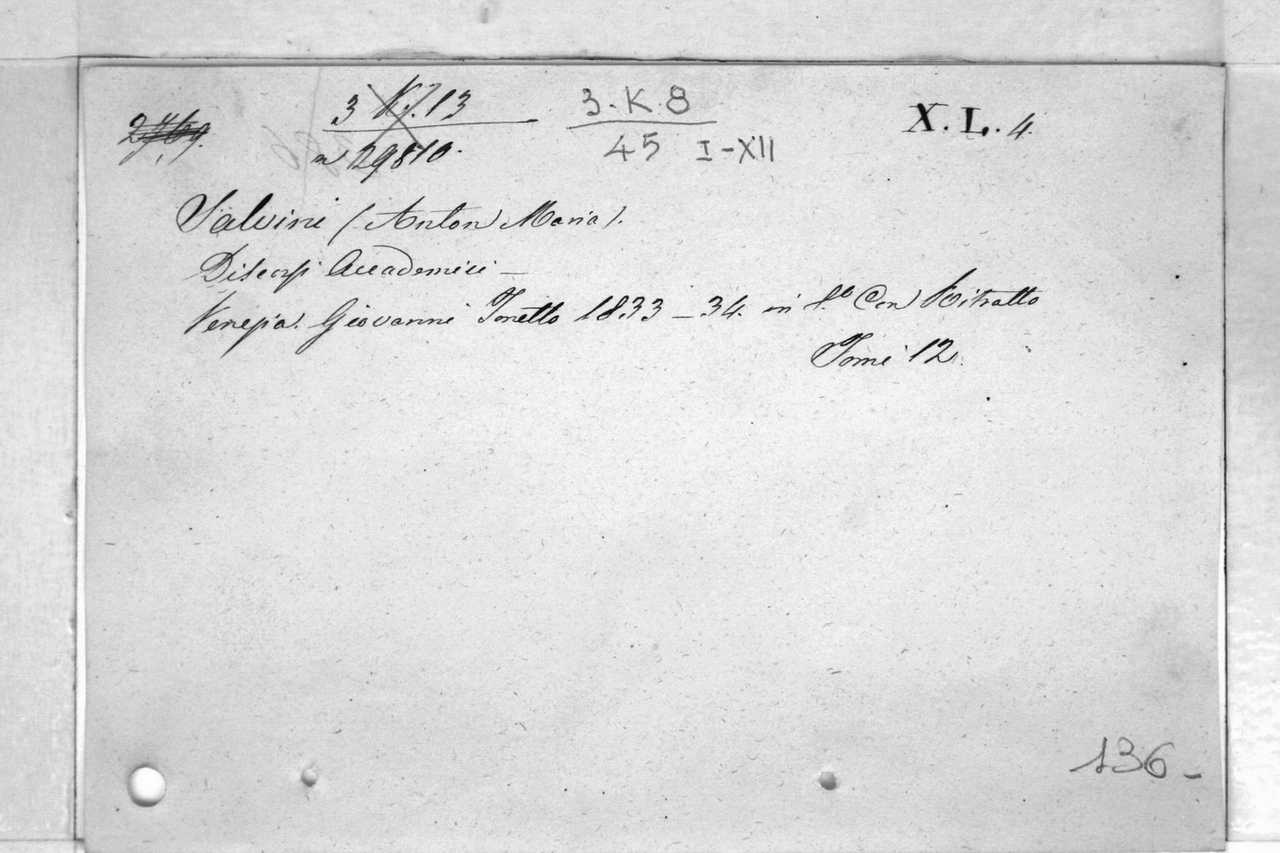 3 K.7.13 3.K.8 X.L.4.
n 29810. 45 I-XII
Salvini (Anton Maria).
Discorsi Accademici —
Venezia. Giovanni Tonetto 1833-34. in 8.° Con Ritratto
Tomi 12.
136-